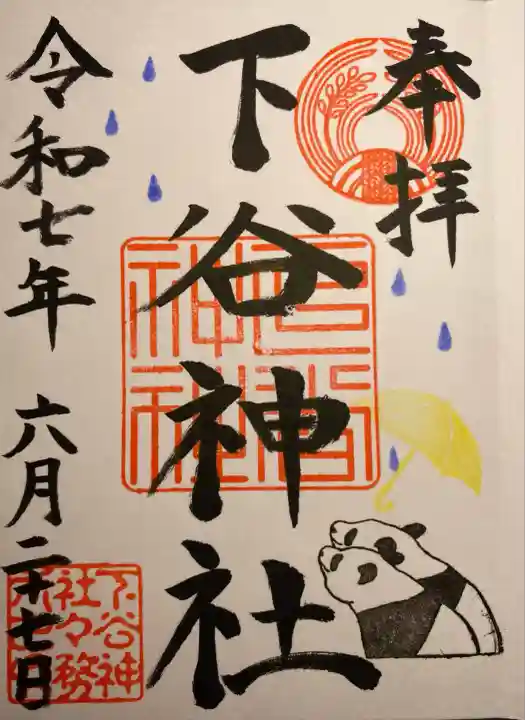 奉拝
下谷神社
令和七年 六月二十七日
下谷神
社々務